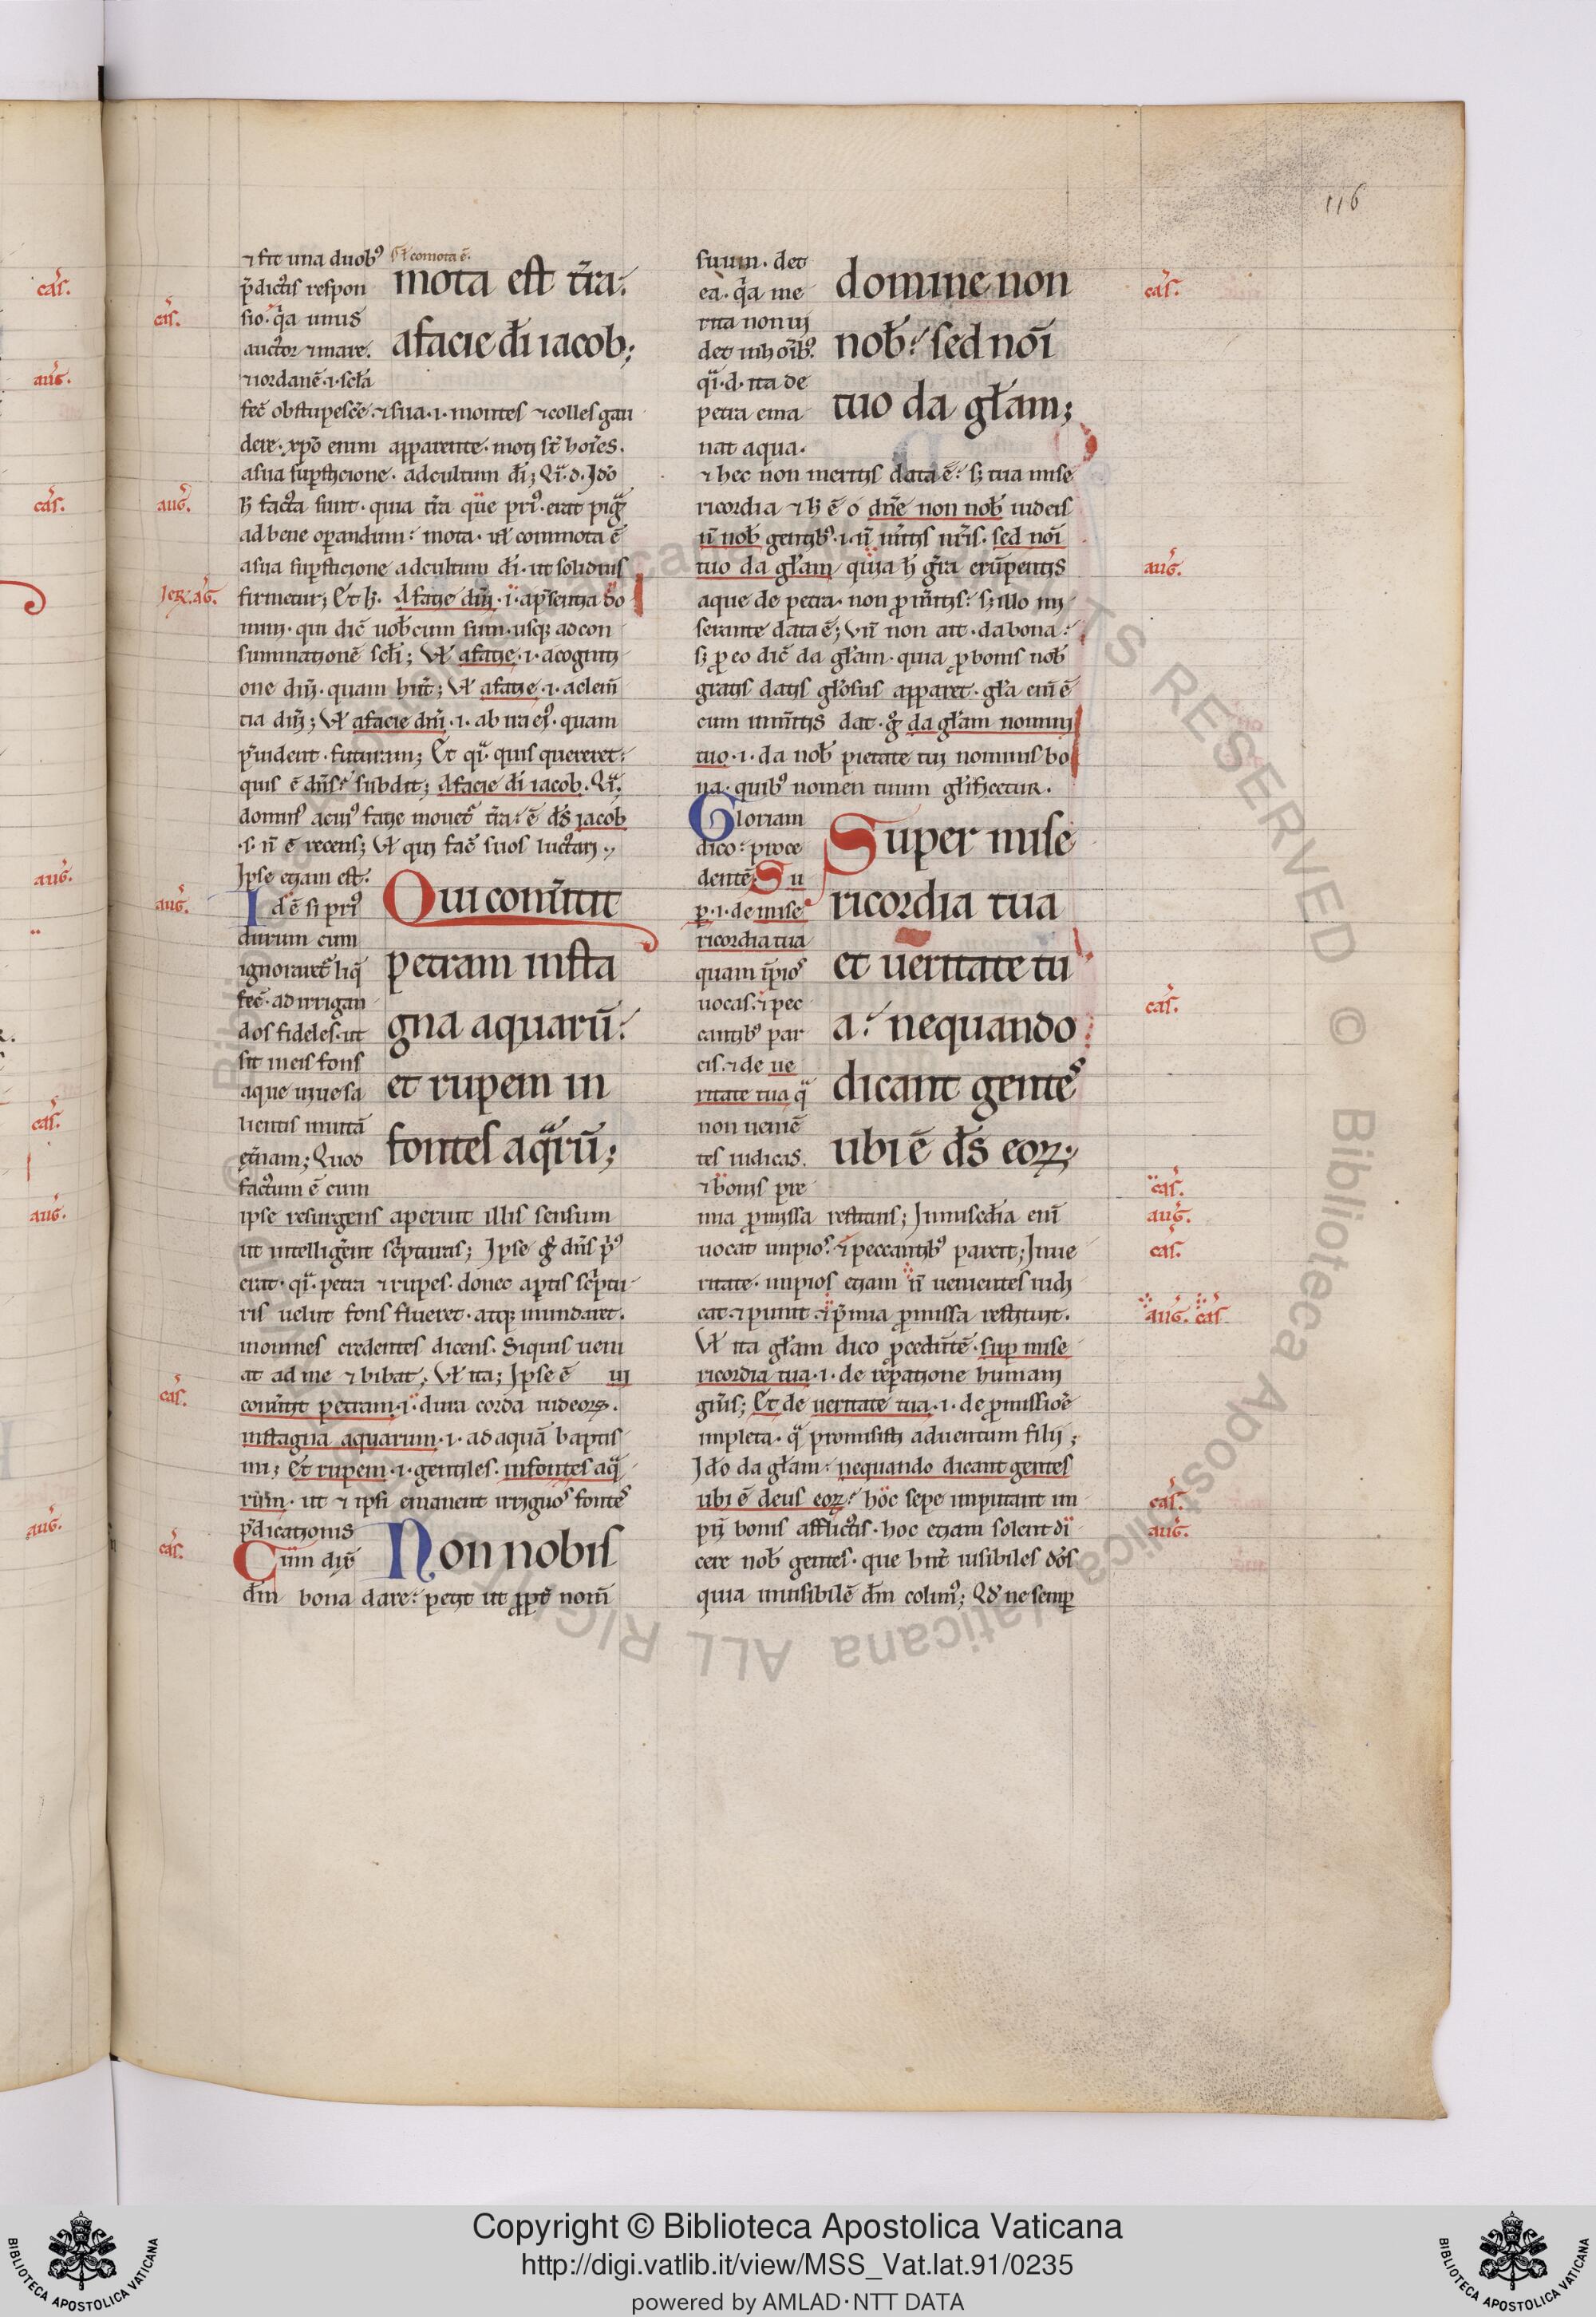 116
⁊ fit una duobꝰ
p̄dictis respon
sio. q̄a unus
auctor ⁊ mare.
⁊ iordanē .i. sc̄la
mota est t̄ra.
afacie dī iacob;
fec̄ obstupesc̄e. ⁊ sua .i. montes ⁊ colles gau
dere. xp̄o enim apparente. moti st̄ hoīes.
asua sup̄sticione. adcultum dī; Qi. d. Ido
h̄ facta sunt. quia t̄ra que priꝰ. erat pigͣ
ad bene op̄andum: mota. ul̄ commota ē
asua sup̄sticione adcultum dī. ut solidius
firmetur; Et h̄. Afatie dn̄i .i. ap̄sentia do
mini. qui dic̄ uob̄cum sum. usq; ad con
summationē sc̄li; Vl̄ afatie .i. acogniti
one dn̄i. quam hn̄t; Vl̄ afatie .i. aclem̄
tia dn̄i; Vl̄ afacie dn̄i .i. ab ira eiꝰ. quam
p̄uident futuram; Et qi. quis quereret:
quis ē dn̄s? subdit; Afacie dī iacob. Qi.
dominꝰ acuiꝰ fatie mouet̄ t̄ra: ē ds̄ iacob
.s. n̄ ē recens; Vl̄ qui fac̄ suos luctari.
Ipse etiam est.
Idē si priꝰ
durum cum
ignoraret̄ liq̄
fec̄. ad irrigan
dos fideles. ut
sit in eis fons
aque uiue sa
lientis in uitā
et̄nam; Quod
factum ē cum
Qui conūtit
petram insta
gna aquarū:
et rupem in
fontes aqͣrū;
ipse resurgens aperuit illis sensum
ut intelligerent sc̄pturas; Ipse g̊ dn̄s pͥꝰ
erat. qi. petra ⁊ rupes. donec ap̄tis sc̄ptu
ris uelut fons flueret. atq; inundaret.
inomnes credentes dicens. Siquis ueni
at ad me ⁊ bibat; Vl̄ ita; Ipse ē ui
conūtit petram .i. dura corda iudeoꝝ.
instagna aquarum .i. ad aquā baptis
mi; Et rupem .i. gentiles. infontes aqͣ
rum. ut ⁊ ipsi emanent irriguos fontes
p̄dicationis
Cum diu̅
Non nobis
dm̄ bona dare: petit ut p̱pt̄ nom̄
suum. det
ea. q̄a me
rita non ui
det in hoībꝰ.
qi. d. ita de
petra ema
nat aqua.
domine non
nob̄: sed noī
tuo da gl̄am;
⁊ hec non meritis data ē: s; tua mise
ricordia ⁊ h̄ ē o dn̄e non nob̄ iudeis
n̄ nob̄ gentibꝰ .i. n̄ m̄itis nr̄is. sed noī
tuo da gl̄am quia h̄ gr̄a erūpentis
aque de petra. non ꝓ m̄itis: s; illo mi
serante data ē; Vn̄ non ait. da bona:
s; ꝓ eo dic̄ da gl̄am. quia ꝓ bonis nob̄
gratis datis gl̄osus apparet. gl̄a enī ē
cum inm̄itis dat. g̊ da gl̄am nomini
tuo .i. da nob̄ pietate tui nominis bo
na. quibꝰ nomen tuum gl̄ificetur.
Gloriam
dico: proce
dentē Su
per .i. de mise
ricordia tua
quam īpios
uocas. ⁊ pec
cantibꝰ par
cis. ⁊ de ue
ritate tua qͣ
non ueniē
tes iudicas.
⁊ bonis pre
Super mise
ricordia tua
et ueritate tu
a: nequando
dicant gentes
ubi ē ds̄ eoꝝ;
mia promissa restituis; In misc̄dia enī
uocat impios. ⁊ peccantibꝰ parcit; In ue
ritate. impios etiam n̄ uenientes iudi
cat. ⁊ punit. ⁊ p̄mia promissa restituit.
Vl̄ ita gl̄am dico p̱cedūtē. sup̱ mise
ricordia tua .i. de rep̄atione humani
gn̄is; Et de ueritate tua .i. de promissiōe
impleta. qͣ promisisti aduentum filii;
Ido da gl̄am: nequando dicant gentes
ubi ē deus eoꝝ: hoc sepe imputant im
pii bonis afflictis. hoc etiam solent di
cere nob̄ gentes. que hn̄t uisibiles dōs
quia inuisibilē dm̄ colimꝰ; Qd̄ ne semp̱
cas.
cas.
aug.
cas.
aug.
Ier. aug.
aug.
aug.
cas.
aug.
cas.
aug.
cas.
cas.
aug.
cas.
cas.
aug.
cas.
aug. cas.
cas.
aug.
Copyright © Biblioteca Apostolica Vaticana
http://digi.vatlib.it/view/MSS_Vat.lat.91/0235
powered by AMLAD·NTT DATA
BIBLIOTECA APOSTOLICA VATICANA
BIBLIOTECA APOSTOLICA VATICANA
© Biblioteca Apostolica Vaticana ALL RIGHTS RESERVED